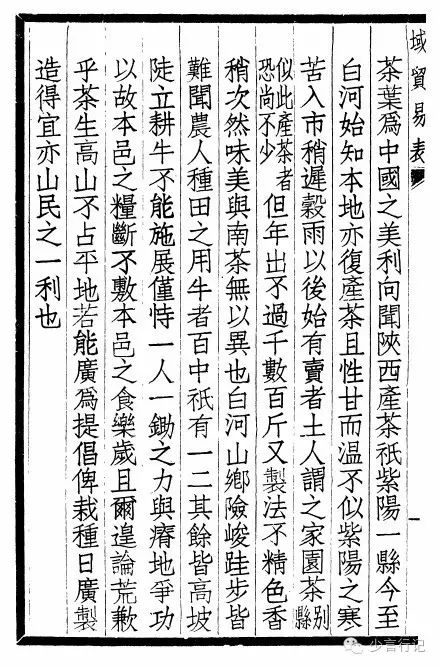 域貿易表
茶葉爲中國之美利向聞陝西產茶祇紫陽一縣今至
白河始知本地亦復產茶且性甘而温不似紫陽之寒
苦入市稍遲穀雨以後始有賣者土人謂之家園茶別縣
似此產茶者恐尚不少但年出不過千數百斤又製法不精色香
稍次然味美與南茶無以異也白河山鄉險峻跬步皆
難聞農人種田之用牛者百中祇有一二其餘皆高坡
陡立耕牛不能施展僅恃一人一鋤之力與瘠地爭功
以故本邑之糧斷不敷本邑之食樂歲且爾遑論荒歉
乎茶生高山不占平地若能廣爲提倡俾栽種日廣製
造得宜亦山民之一利也
一
少言行记